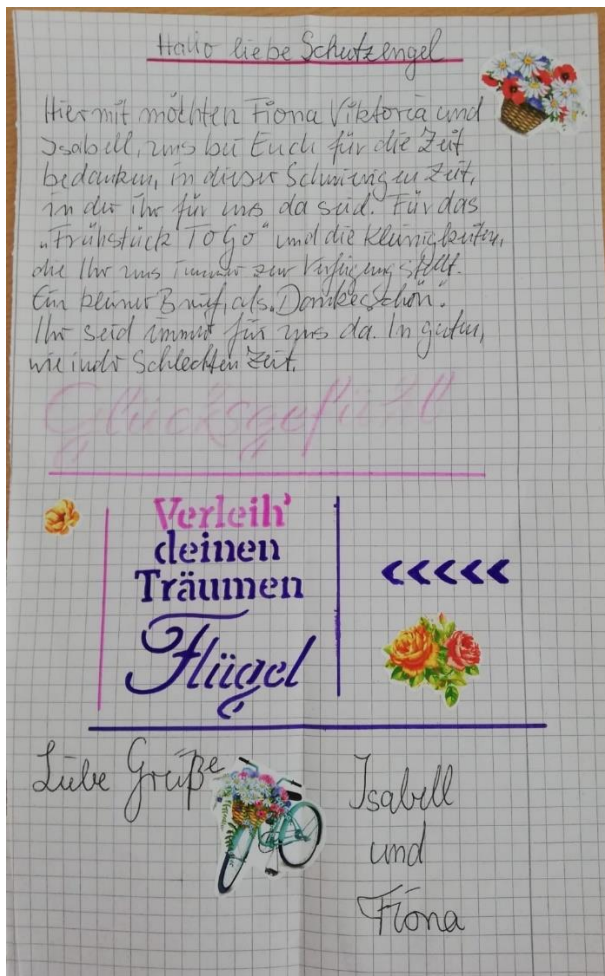 Hallo liebe Schutzengel
Hiermit möchten Fiona Viktoria und
Isabell, uns bei Euch für die Zeit
bedanken, in dieser Schwierigen Zeit,
in der ihr für uns da seid. Für das
„Frühstück To Go" und die Kleinigkeiten,
die Ihr uns immer zur Verfügung stellt.
Ein kleiner Brief, als „Dankeschön".
Ihr seid immer für uns da. In guten,
wie in der Schlechten Zeit.
Glücksgefühl
Verleih'
deinen
Träumen
Flügel
Liebe Grüße
Isabell
und
Fiona